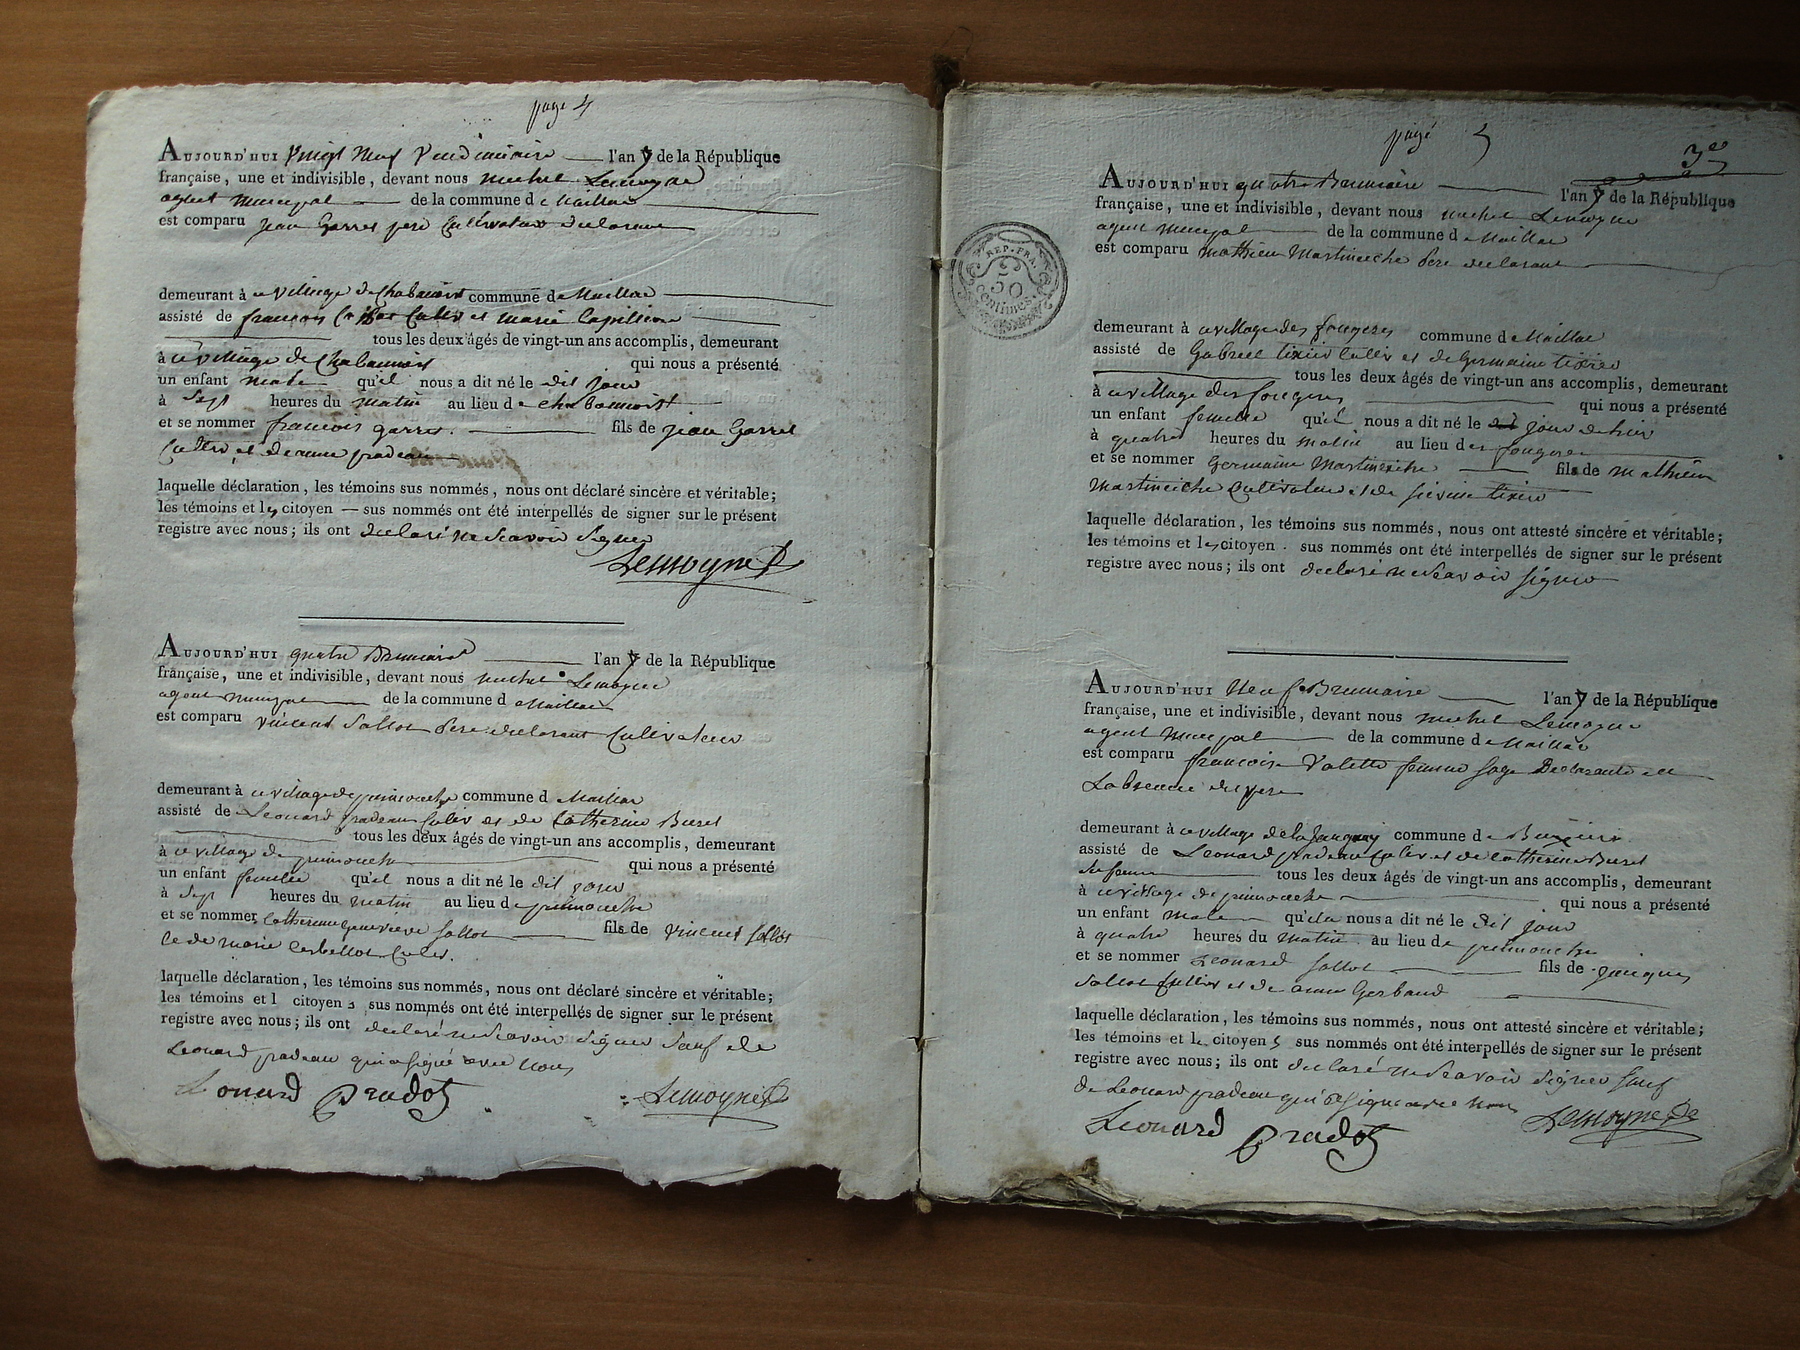 page 4
AUJOURD'HUI Vingt Neuf Vendémiaire l'an 7 de la République
française, une et indivisible, devant nous michel Lemoyne
agent municipal de la commune de Maillac
est comparu jean Garres pere Cultivateur declarant
demeurant à ce village de Chabannois commune de Maillac
assisté de francois Culter et marie
tous les deux âgés de vingt-un ans accomplis, demeurant
à ce village de Chabannois qui nous a présenté
un enfant male qu'il nous a dit né le dit jour
à Sept heures du matin au lieu de chabannoist
et se nommer francois garres. fils de jean Garres
Culter et de anne pradeau
laquelle déclaration, les témoins sus nommés, nous ont déclaré sincère et véritable;
les témoins et les citoyen sus nommés ont été interpellés de signer sur le présent
registre avec nous; ils ont declaré ne Scavoir Signer
Lemoyne
AUJOURD'HUI quatre Brumaire l'an 7 de la République
française, une et indivisible, devant nous michel Lemoyne
agent municipal de la commune d Maillac
est comparu vincent Sallot Pere declarant Cultivateur
demeurant à ce village de commune d Maillac
assisté de Leonard pradeau Culer et de Catherine Buret
tous les deux âgés de vingt-un ans accomplis, demeurant
à ce village de qui nous a présenté
un enfant femelle qu'il nous a dit né le dit jour
à Sept heures du matin au lieu de
et se nommer Catherine genevieve Sallot fils de vincent Sallot
et de marie Culer.
laquelle déclaration, les témoins sus nommés, nous ont déclaré sincère et véritable;
les témoins et l citoyen s sus nommés ont été interpellés de signer sur le présent
registre avec nous; ils ont declaré ne Scavoir Signer Sauf le
Leonard pradeau qui a signé avec nous
Leonard Pradot Lemoyne
page 5
3e
AUJOURD'HUI quatre Brumaire l'an 7 de la République
française, une et indivisible, devant nous michel Lemoyne
agent municipal de la commune d Maillac
est comparu mathieu Martineiche Pere declarant
REP. FRA.
50
centimes.
demeurant à ce village des fougeres commune de Maillac
assisté de Gabriel tixier Culer et de Germaine tixier
tous les deux âgés de vingt-un ans accomplis, demeurant
à ce village des fougeres qui nous a présenté
un enfant femelle qu'il nous a dit né le jour de hier
à quatre heures du matin au lieu des fougeres
et se nommer Germaine Martineiche fils de mathieu
Martineiche Cultivateur et de tixier
laquelle déclaration, les témoins sus nommés, nous ont attesté sincère et véritable;
les témoins et les citoyen. sus nommés ont été interpellés de signer sur le présent
registre avec nous; ils ont declaré ne Scavoir signer
AUJOURD'HUI Neuf Brumaire l'an 7 de la République
française, une et indivisible, devant nous michel Lemoyne
agent municipal de la commune de Maillac
est comparu francoise Valette femme sage Declarante en
Labsence du pere
demeurant à ce village de la commune de
assisté de Leonard pradeau Culer et de Catherine Buret
Sa femme tous les deux âgés de vingt-un ans accomplis, demeurant
à ce village de qui nous a présenté
un enfant male qu'ila nous a dit né le dit jour
à quatre heures du matin au lieu de
et se nommer Leonard Sallot fils de jacques
Sallot Culler et de anne Gerbaud
laquelle déclaration, les témoins sus nommés, nous ont attesté sincère et véritable;
les témoins et le citoyen s sus nommés ont été interpellés de signer sur le présent
registre avec nous; ils ont declaré ne Scavoir Signer Sauf
de Leonard pradeau qui a signé avec nous
Leonard Pradot Lemoyne